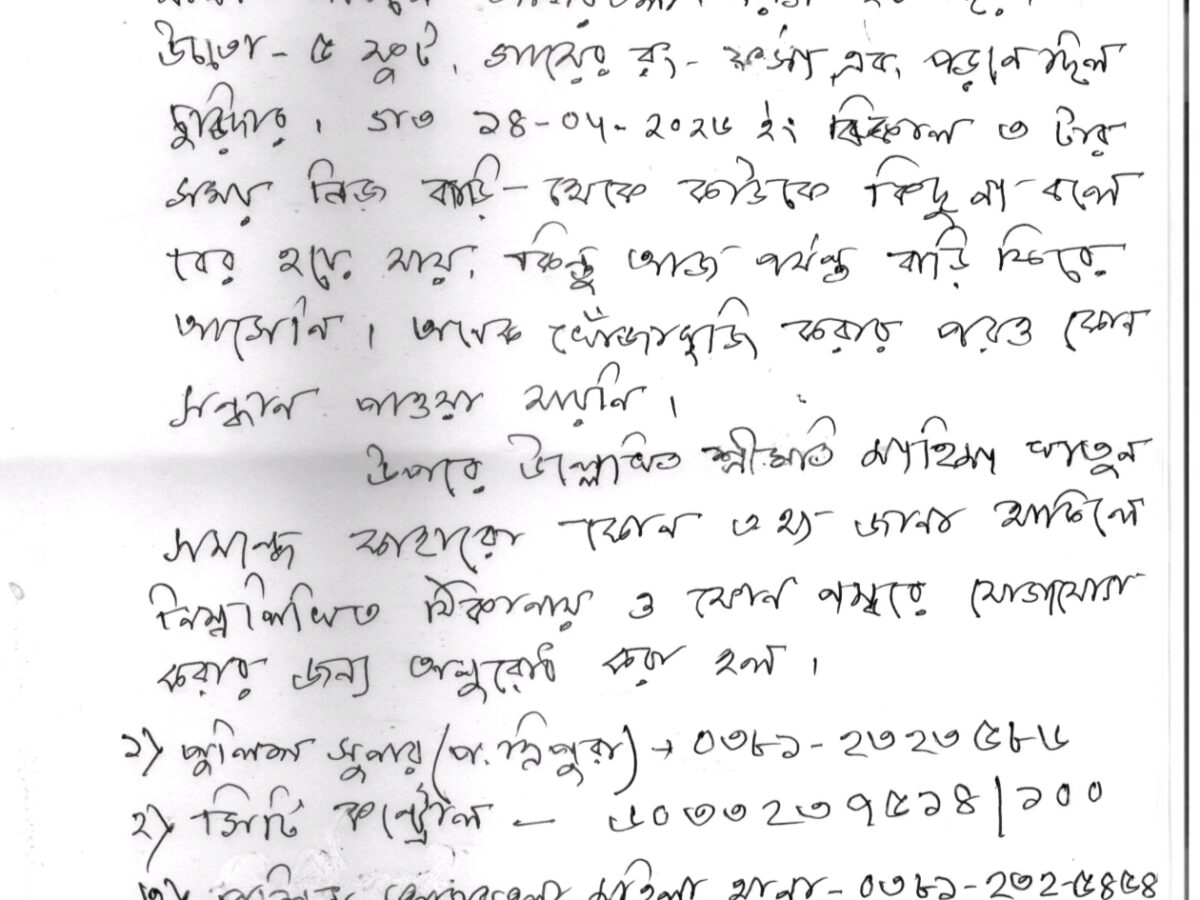 উচ্চতা - ৫ ফুট, গায়ের রং - ফর্সা এবং পড়নে ছিল
চুরিদার। গত ১৪-০৫-২০২৬ ইং বিকাল ৩ টার
সময় নিজ বাড়ি থেকে কাউকে কিছু না বলে
বের হয়ে যায়, কিন্তু আজ পর্যন্ত বাড়ি ফিরে
আসেনি। অনেক খোঁজাখুজি করার পরও কোন
সন্ধান পাওয়া যায়নি।
উপরে উল্লেখিত শ্রীমতি খাতুন
সমন্ধে কাহারো কোন তথ্য জানা থাকিলে
নিম্নলিখিত ঠিকানায় ও ফোন নম্বরে যোগাযোগ
করার জন্য অনুরোধ করা হল।
১) পুলিশ সুপার (প. ত্রিপুরা) → ০৩৮১-২৩২৩৫৮৬
২) সিটি কন্ট্রোল - ৬০৩৩২৩৭৫১৪|১০০
৩) মহিলা থানা - ০৩৮১-২৩২-৫৪৫৪